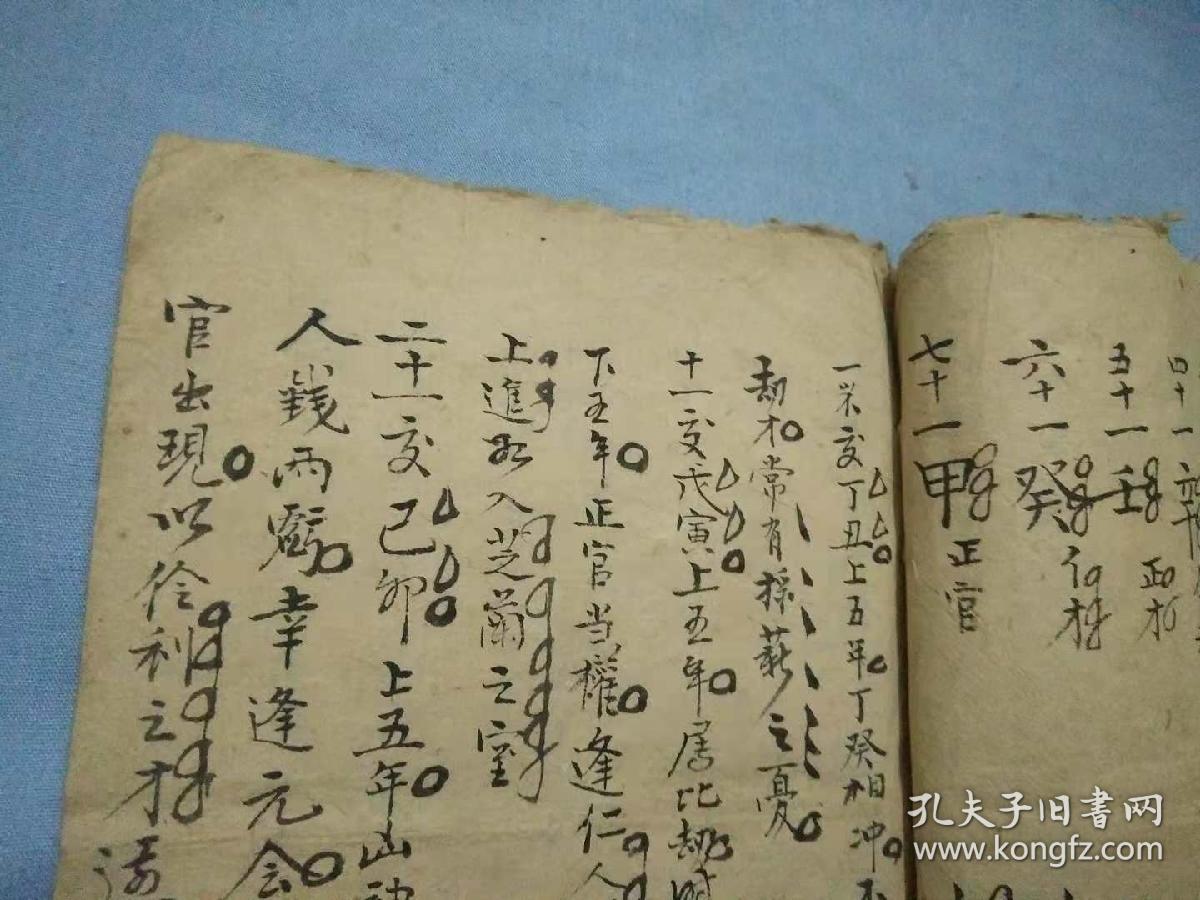 四十一
五十一壬 正才
六十一癸
七十一甲 正官
一岁交丁丑上五年丁癸相冲不
劫才常有採薪之憂
十一交戊寅上五年居比劫
下五年正官当權逢仁人
上進如入芝蘭之室
二十一交己卯上五年凶神
人錢両虧幸逢元会
官出現以伶利之才
孔夫子旧书网
www.kongfz.com